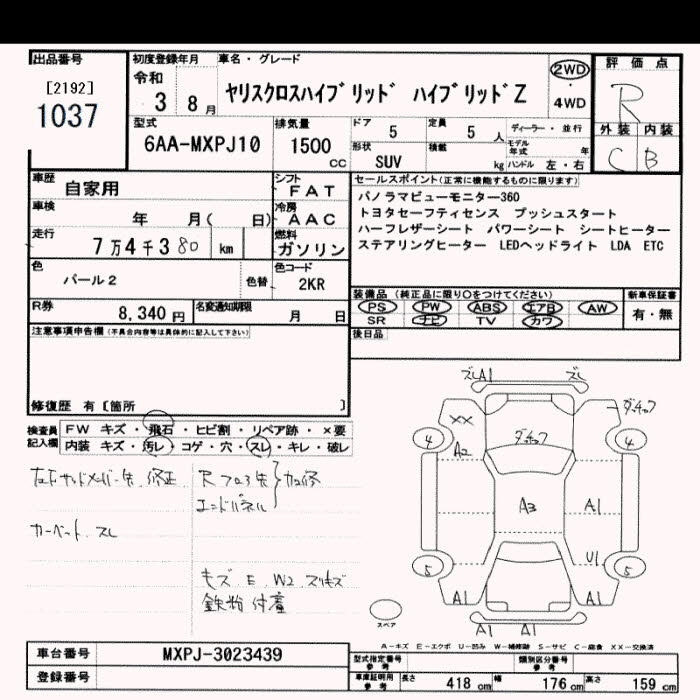 出品番号
[2192]
1037
初度登録年月
令和
3 8月
車名・グレード
ヤリスクロスハイブリッド ハイブリッドZ
2WD
・
4WD
評価点
R
外装 内装
C B
型式
6AA-MXPJ10
排気量
1500
cc
ドア
5
定員
5人
形状
SUV
積載
kg
ディーラー・並行
モデル年式 年
ハンドル 左・右
車歴
自家用
シフト
FAT
車検
年 月( 日)
冷房
AAC
走行
7万4千380 km
燃料
ガソリン
色
パール2
色替
色コード
2KR
R券
8,340円
名変通知期限
月 日
セールスポイント(正常に機能するものに限ります)
パノラマビューモニター360
トヨタセーフティセンス プッシュスタート
ハーフレザーシート パワーシート シートヒーター
ステアリングヒーター LEDヘッドライト LDA ETC
装備品(純正品に限り○をつけてください)
PS PW ABS エアB AW
SR ナビ TV カワ
新車保証書
有・無
後日品
注意事項申告欄(不具合内容等は具体的に記入して下さい)
修復歴 有〔箇所 〕
検査員記入欄
FW キズ・飛石・ヒビ割・リペア跡・×要
内装 キズ・汚レ・コゲ・穴・スレ・キレ・破レ
修正
カーペット スレ
R フロア
エンドパネル
キズ E W2 スリキズ
鉄粉 付着
ズレ A1 ズレ
XX
4
A2
4
A3
A1
5
U1
5
A1 A1
A1 A1
スペア
A-キズ E-エクボ U-凹み W-補修跡 S-サビ C-腐食 XX-交換済
車台番号
MXPJ-3023439
登録番号
型式指定番号
参考
類別区分番号
参考
車庫証明用
参考
長さ 418cm 幅 176cm 高さ 159cm